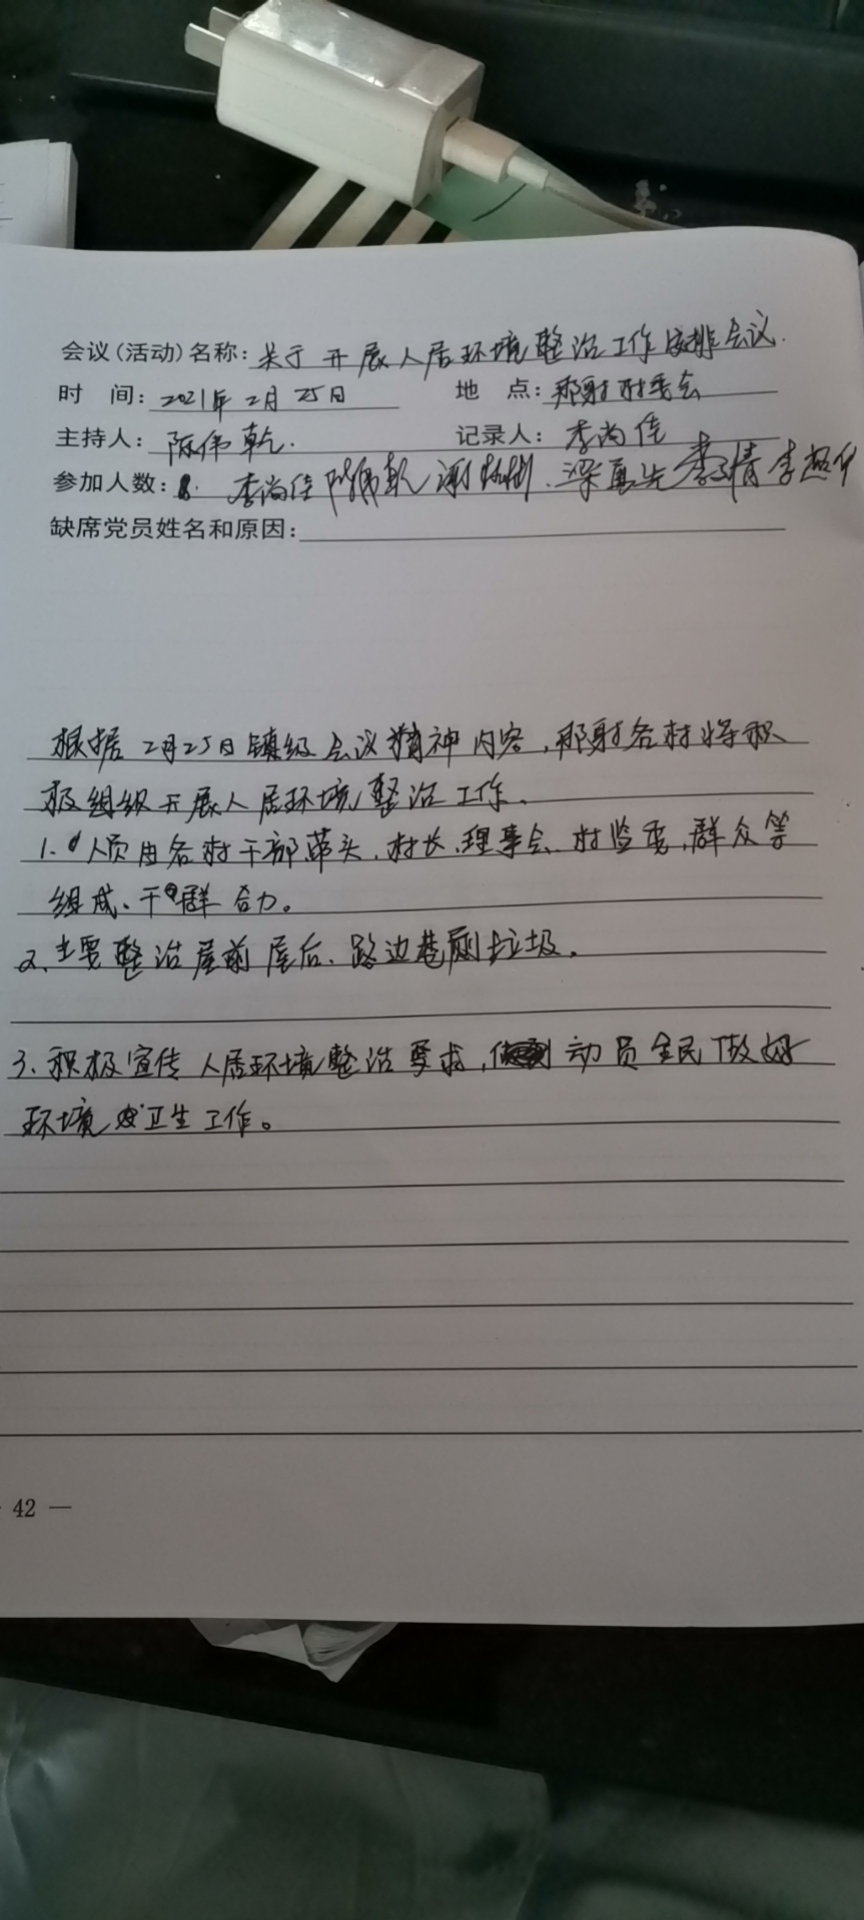 会议(活动)名称：关于开展人居环境整治工作安排会议.
时 间：2021年2月25日 地 点：那射村委会
主持人：陈伟乾. 记录人：李尚佳
参加人数：8. 李尚佳 陈伟乾
缺席党员姓名和原因：
根据2月25日镇级会议精神内容，那射各村将积
极组织开展人居环境整治工作.
1. 人员由各村干部带头、村长、理事会、村监委、群众等
组成、干群合力。
2、主要整治屋前屋后、路边巷厕垃圾.
3、积极宣传人居环境整治要求， 动员全民做好
环境卫生工作。
42 —